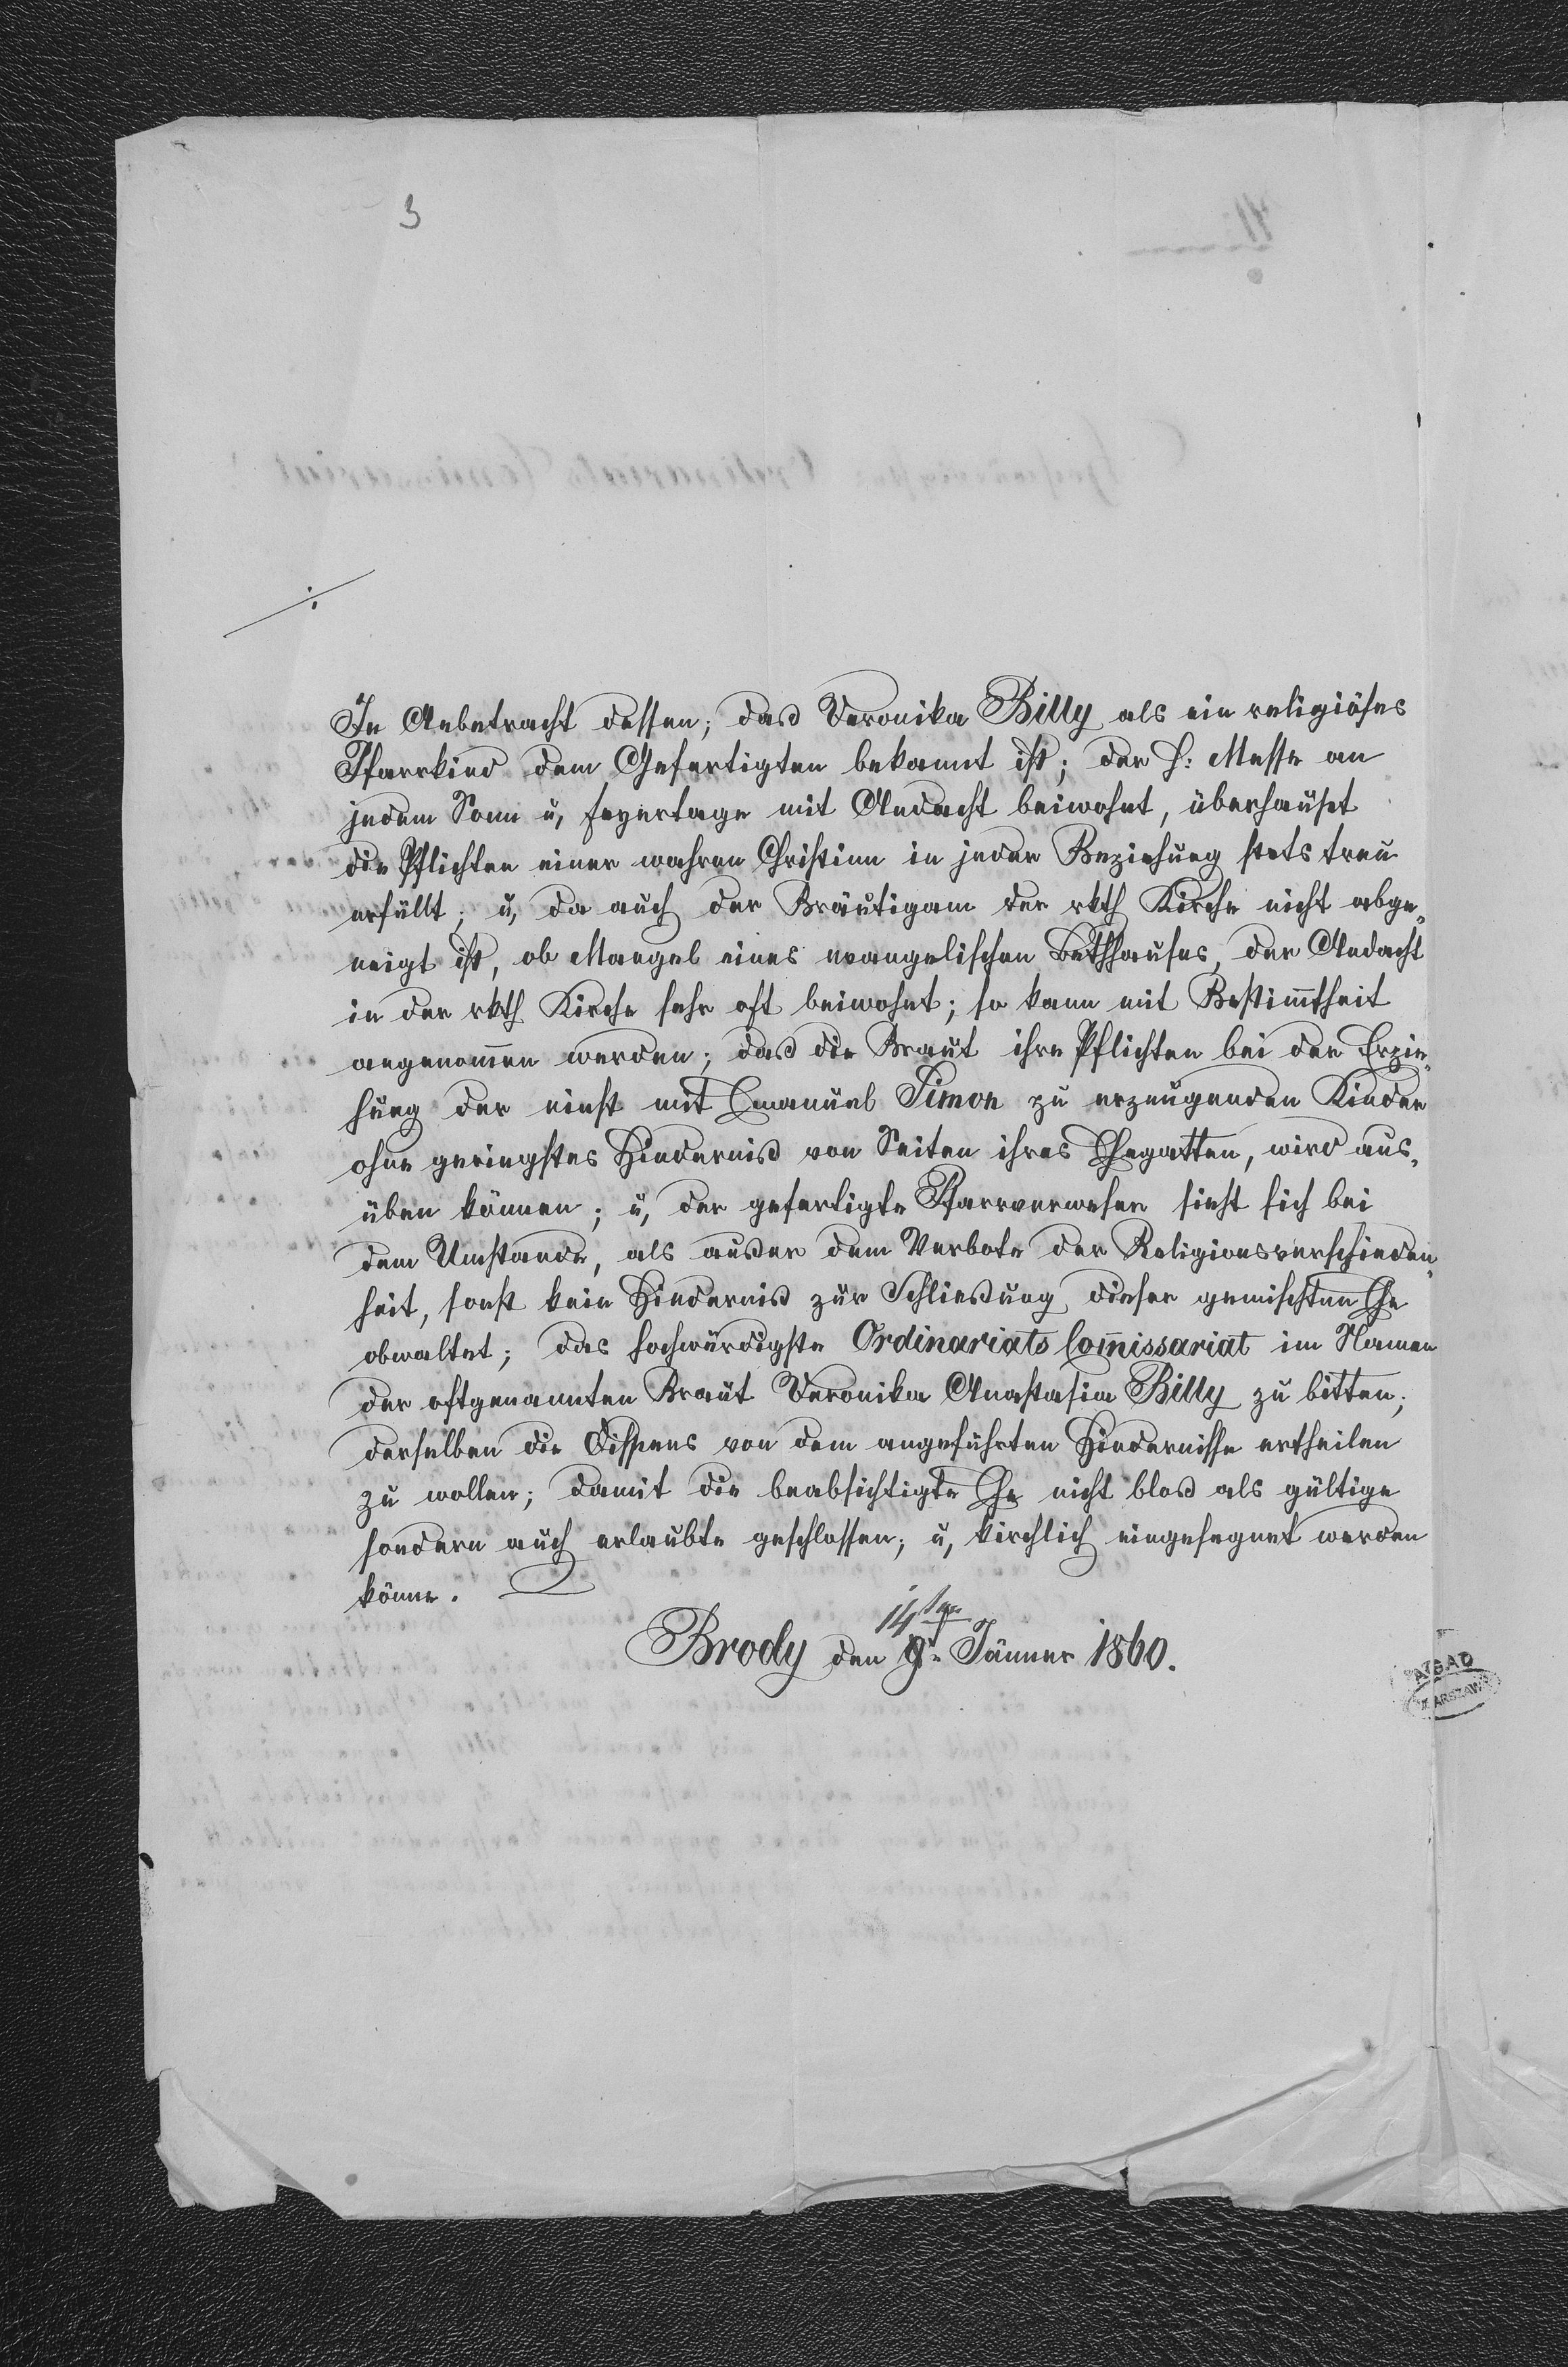 3
In Anbetracht dessen; daß Veronika Billy als ein religiöses
Pfarrkind dem Gefertigten bekannt ist; der h: Messe an
jedem Sonn u, Feyertage mit Andacht beiwohnt, überhaupt
die Pflichten einer wahren Christinn in jeder Beziehung stets treu
erfüllt; u, da auch der Bräutigam der rkth Kirche nicht abge„
neigt ist, ob Mangel eines evangelischen Bethhauses, der Andacht
in der rkth Kirche sehr oft beiwohnt; so kann mit Bestim̅theit
angenom̅en werden; daß die Braut ihre Pflichten bei der Erzie„
hung der einst mit Emanuel Simon zu erzeugenden Kinder
ohne geringstes Hinderniß von Seiten ihres Ehegatten, wird aus„
üben können; u, der gefertigte Pfarrverweser sieht sich bei
dem Umstande, als außer dem Verbote der Religionsverschieden„
heit, sonst kein Hinderniß zur Schließung dieser gemischten Ehe
obwaltet; das hochwürdigste Ordinariats Com̅issariat im Namen
der oftgenannten Braut Veronika Anastasia Billy zu bitten;
derselben die Dispens von dem angeführten Hindernisse ertheilen
zu wollen; damit die beabsichtigte Ehe nicht bloß als gültige
sondern auch erlaubte geschlossen; u, kirchlich eingesegnet werden
könne.
14ten
Brody den 9. Jänner 1860.
AGAD
WARSZAWA